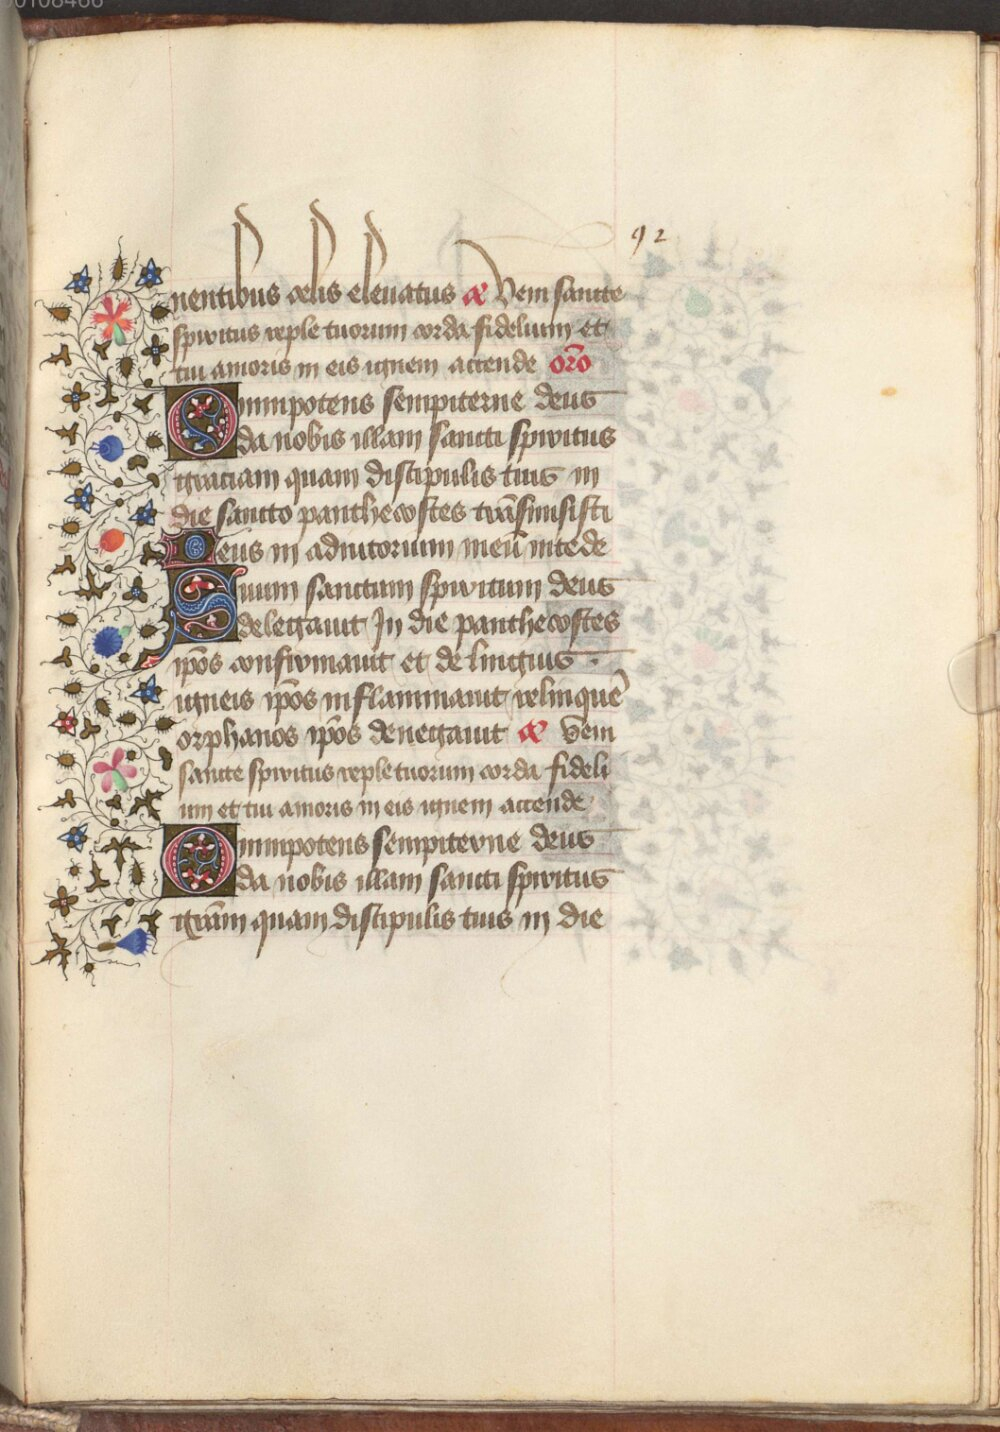 92
nentibus celis eleuatus ā Veni sancte
spiritus reple tuorum corda fidelium et
tui amoris in eis ignem accende orō
Omnipotens sempiterne deus
da nobis illam sancti spiritus
graciam quam discipulis tuis in
die sancto panthecostes trāsmisisti
Deus in adiutorium meū intēde
Suum sanctum spiritum deus
delegauit In die panthecostes
ip̄os confirmauit et de linguis .
igneis ip̄os inflammauit relinquē
orphanos ip̄os denegauit ā Veni
sancte spiritus reple tuorum corda fideli
um et tui amoris in eis ignem accende
Omnipotens sempiterne deus
da nobis illam sancti spiritus
grām quam discipulis tuis in die